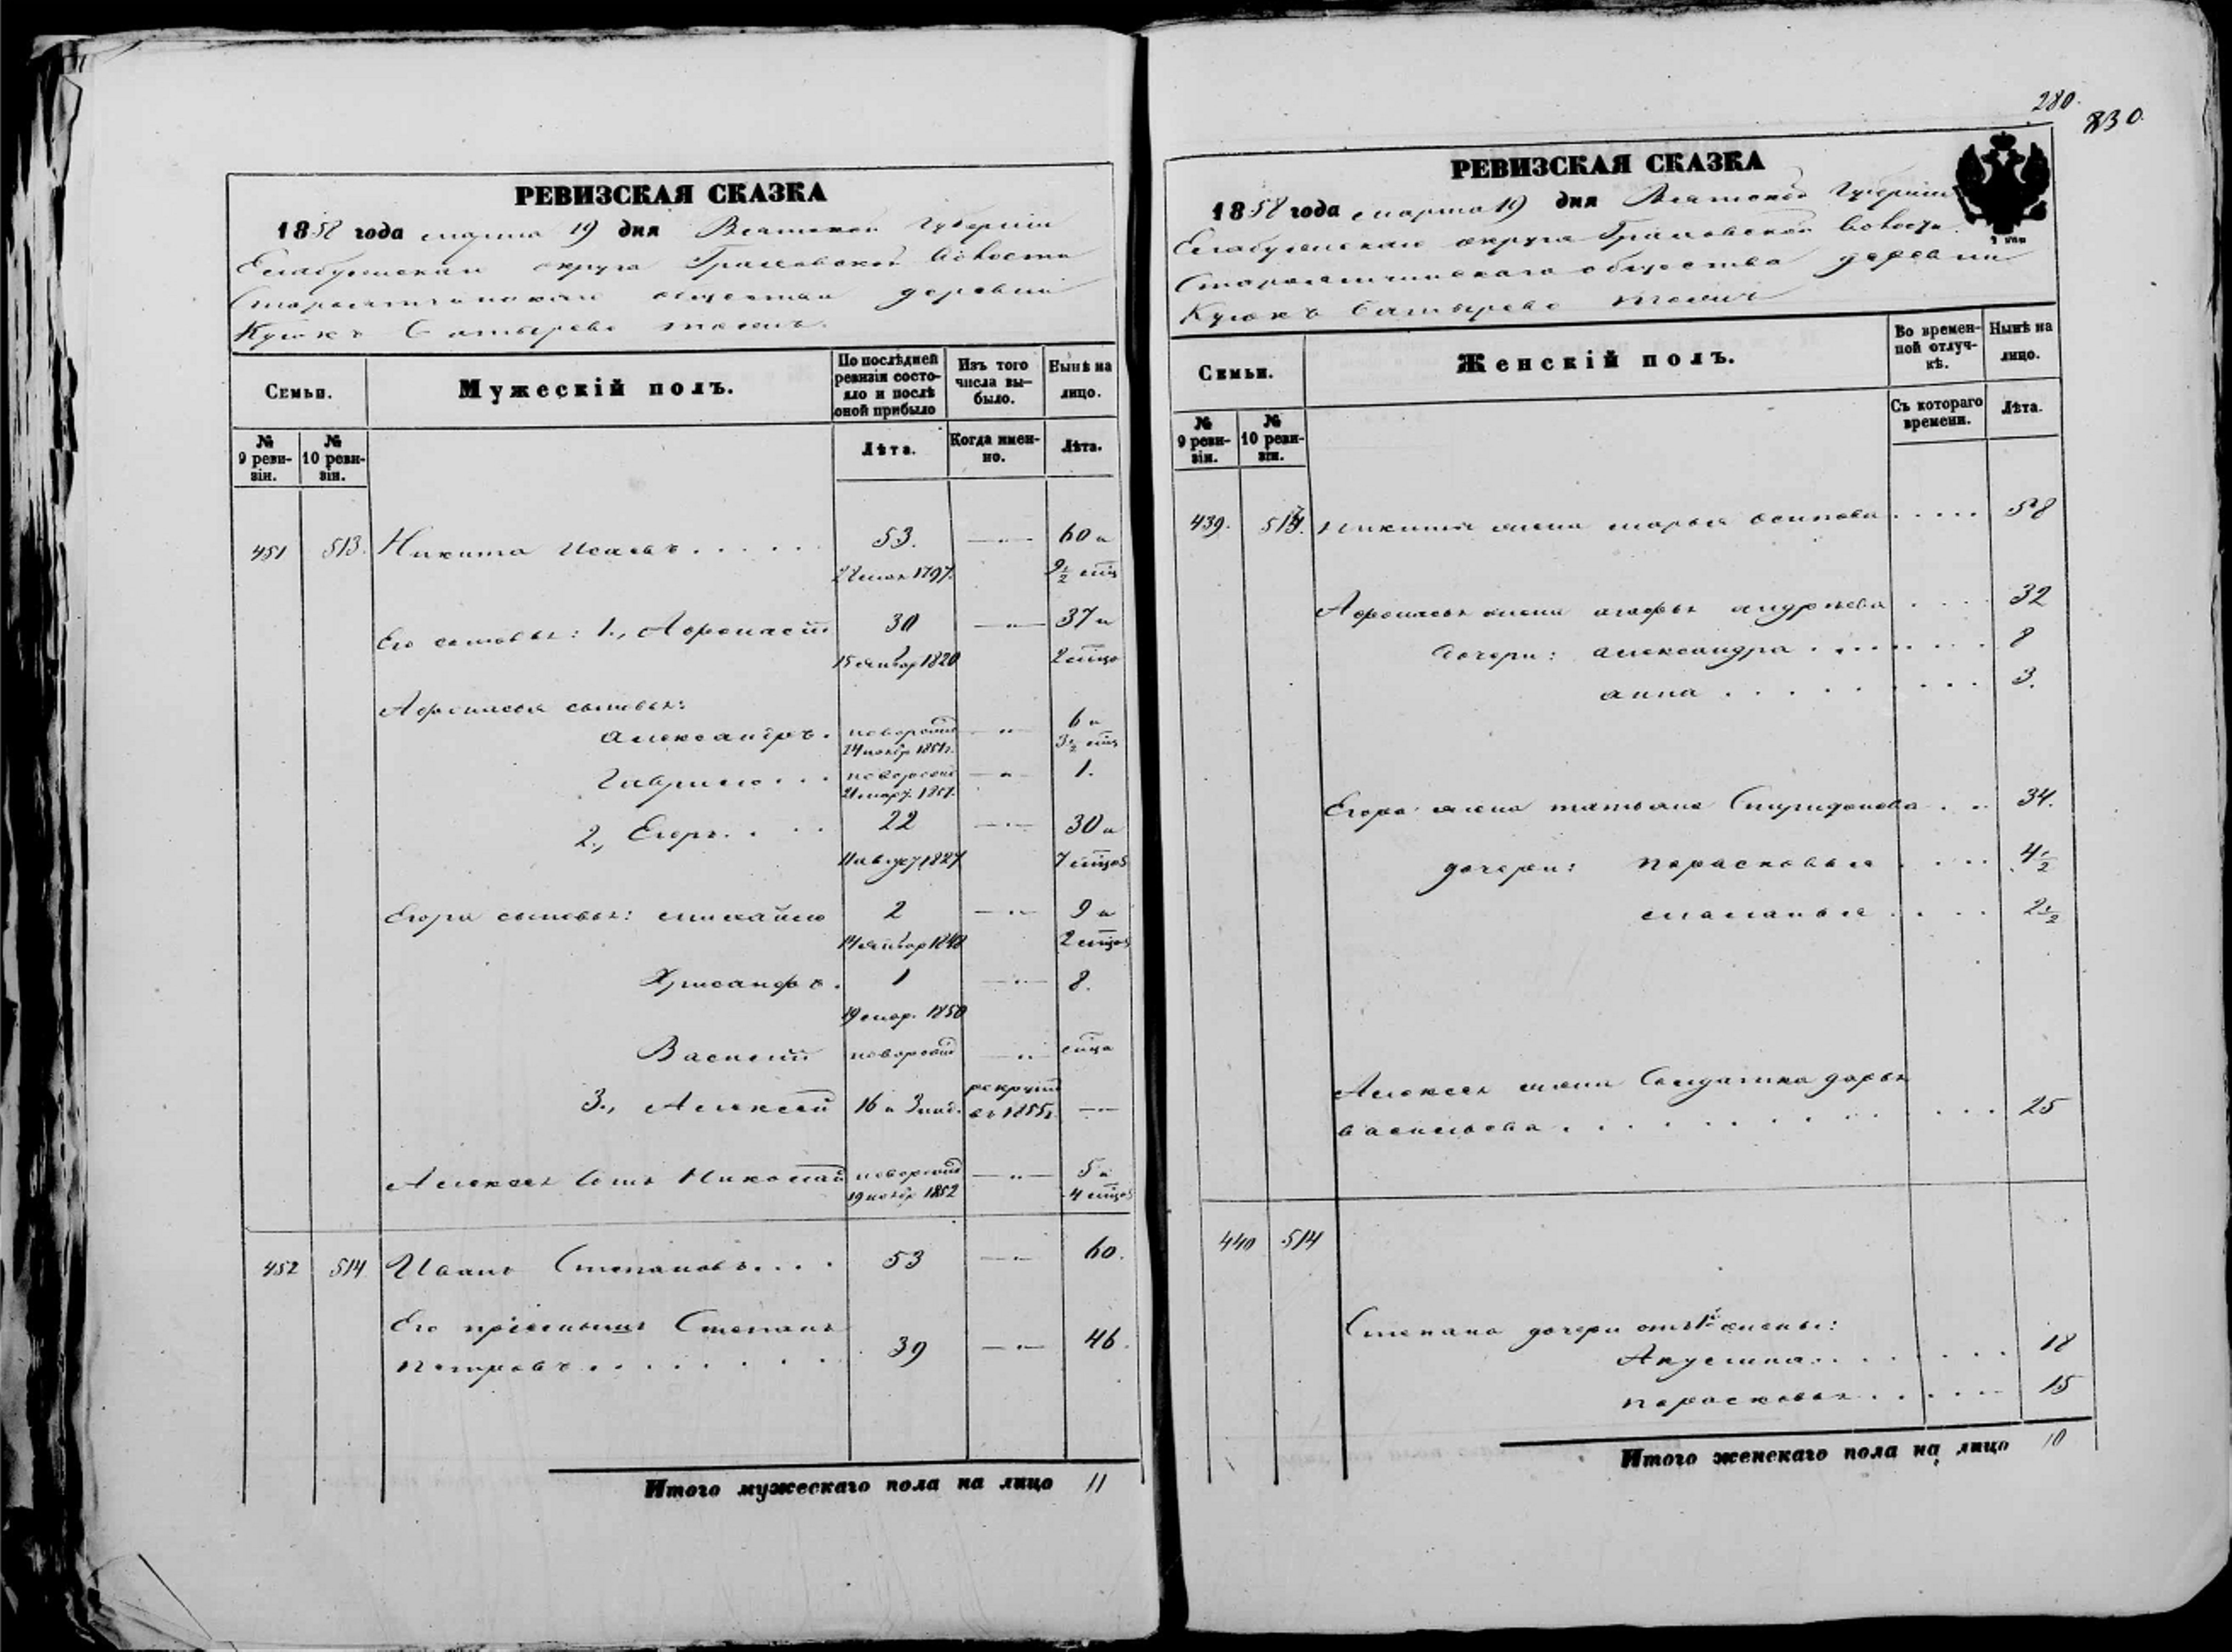 280.
830
РЕВИЗСКАЯ СКАЗКА
1858 года марта 19 дня Вятской Губернiи
Елабужскаго округа Граховской волости
общества деревни
Кулюкъ Сатырево тожъ.
Семьи.
Мужескiй полъ.
По послѣдней ревизiи состояло и послѣ оной прибыло
Изъ того числа выбыло.
Нынѣ на лицо.
№ 9 ревизiи.
№ 10 ревизiи.
Лѣта.
Когда именно.
Лѣта.
451 513. Никита Исаевъ . . . . . 53. —"— 60 и
22 мая 1797. 2½ мѣц
Его сыновья: 1., Афонасiй 30 —"— 37 и
15 января 1820 2 мѣца
Афонасья сыновья:
Александръ . новорожд —"— 6 и
24 ноябр 1851г. 3½ мѣц
Гаврило . . . новорожд —"— 1.
21 мар. 1857.
2., Егоръ . . . . 22 —"— 30 и
11 август 1827 7 мѣцов
Егора сыновья: Михайло 2 —"— 9 и
14 января 1848 2 мѣцов
Хрисанфъ . 1 —"— 8.
19 мар. 1850
Василiй новорожд —"— мѣца
3., Алексей 16 и 3 нед. рекрут въ 1855г. —"—
Алексея сынъ Николай новорожд —"— 5 и
19 ноябр 1852 4 мѣцов
452 514 Иванъ Степановъ . . . . 53 —"— 60.
Его прiемышъ Степанъ
Петровъ . . . . . . . 39 —"— 46.
Итого мужескаго пола на лицо 11
РЕВИЗСКАЯ СКАЗКА
1858 года марта 19 дня Вятской Губернiи
Елабужскаго округа Граховской волости
общества деревни
Кулюкъ Сатырево тожъ
Семьи.
Женскiй полъ.
Во временной отлучкѣ.
Нынѣ на лицо.
№ 9 ревизiи.
№ 10 ревизiи.
Съ котораго времени.
Лѣта.
439. 513. Никиты жена Марья Осипова . . . . . 58
Афонасья жена Агафья Андреева . . . . 32
дочери: Александра . . . . . . . 8
Анна . . . . . . . . . 3.
Егора жена Татьяна Спиридонова . . . 34.
дочери: Парасковья . . . . 4½
Маланья . . . . 2½
Алексея жена Солдатка Дарья
Васильева . . . . . . . . . . . 25
440 514
Степана дочери отъ 1й жены:
Акулина . . . . . . . . 18
Парасковья . . . . . . 15
Итого женскаго пола на лицо 10